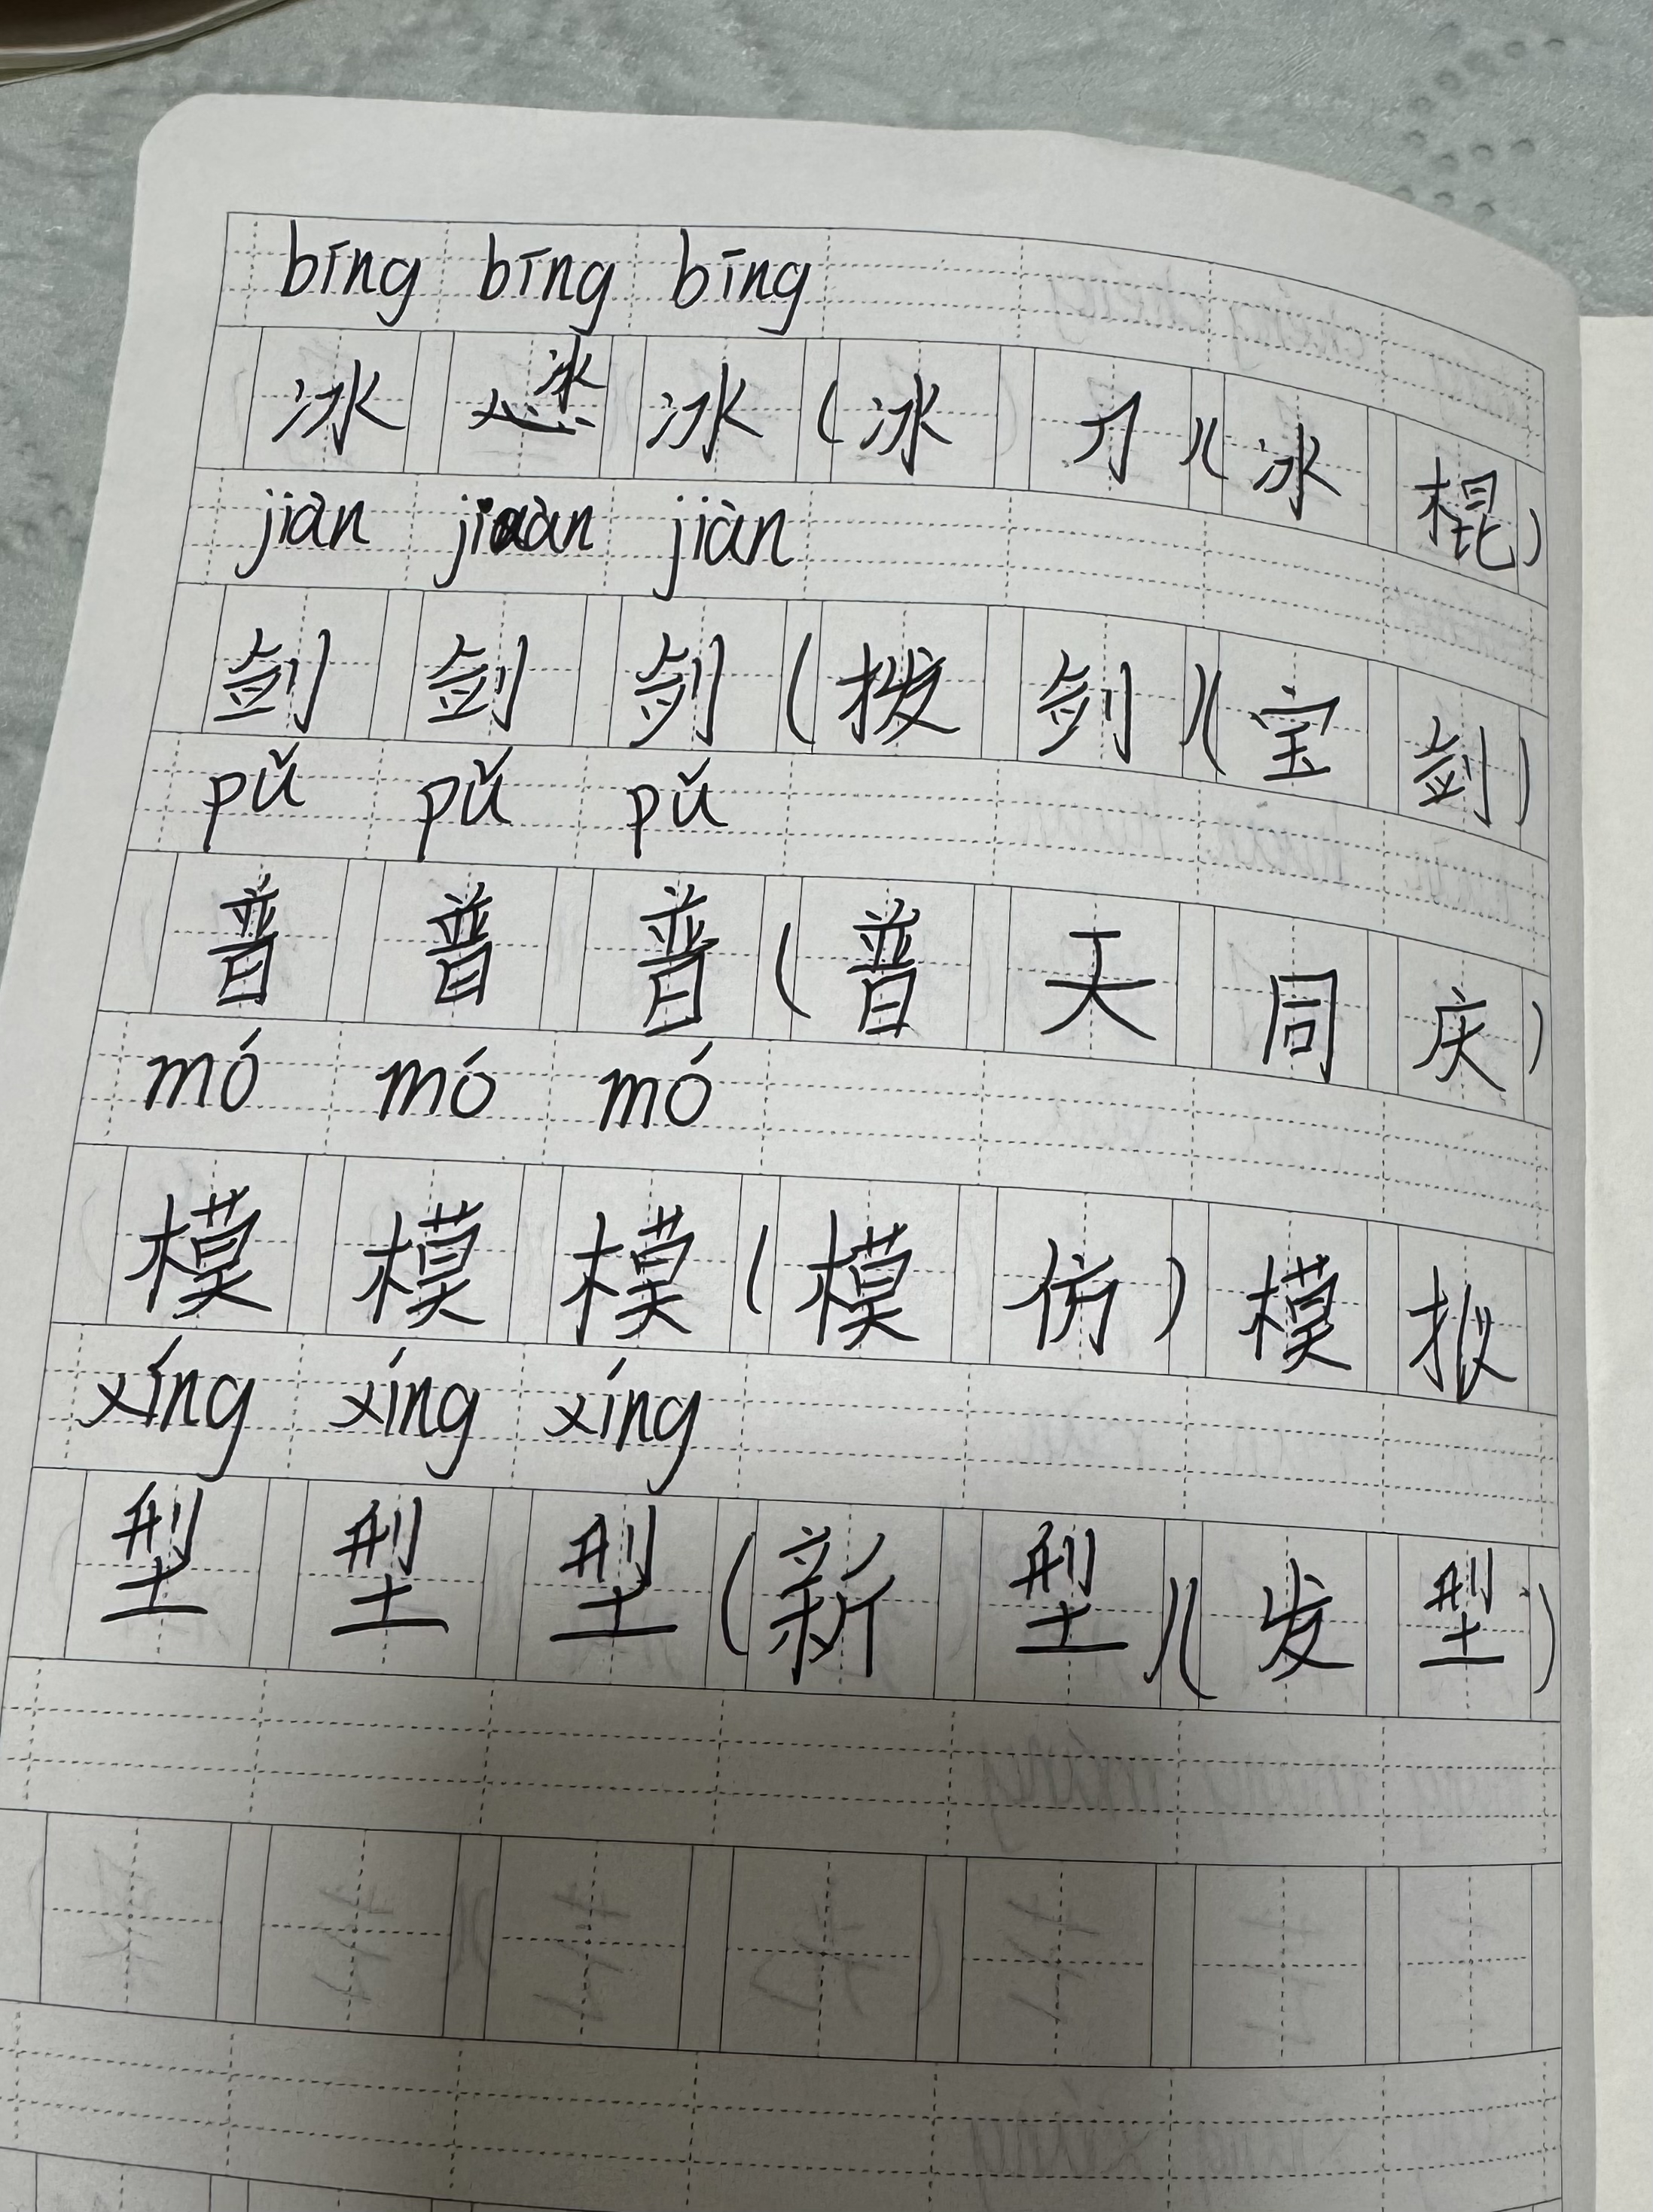 bīng bīng bīng
冰 冰 冰 (冰 刀)(冰 棍)
jiàn jiàn jiàn
剑 剑 剑 (拨 剑)(宝 剑)
pǔ pǔ pǔ
普 普 普 (普 天 同 庆)
mó mó mó
模 模 模 (模 仿) 模 拟
xíng xíng xíng
型 型 型 (新 型)(发 型)